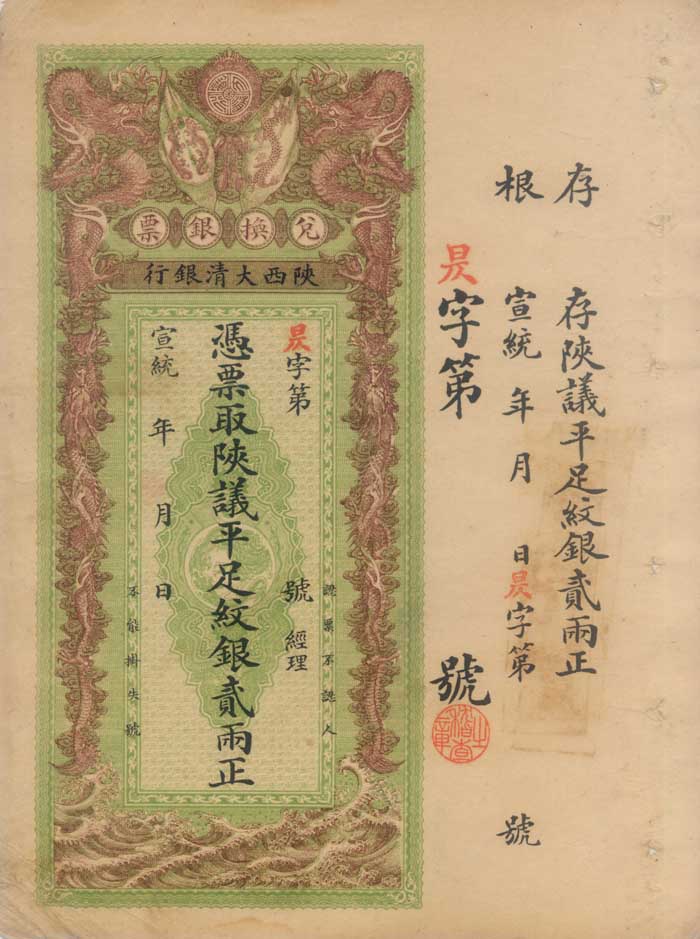 存根
存陝議平足紋銀貳兩正
宣統 年 月 日昃字第 號
昃字第 號
稽查之章
兌換銀票
陝西大清銀行
昃字第 號 經理
憑票取陝議平足紋銀貳兩正
宣統 年 月 日
認票不認人
不能掛失號